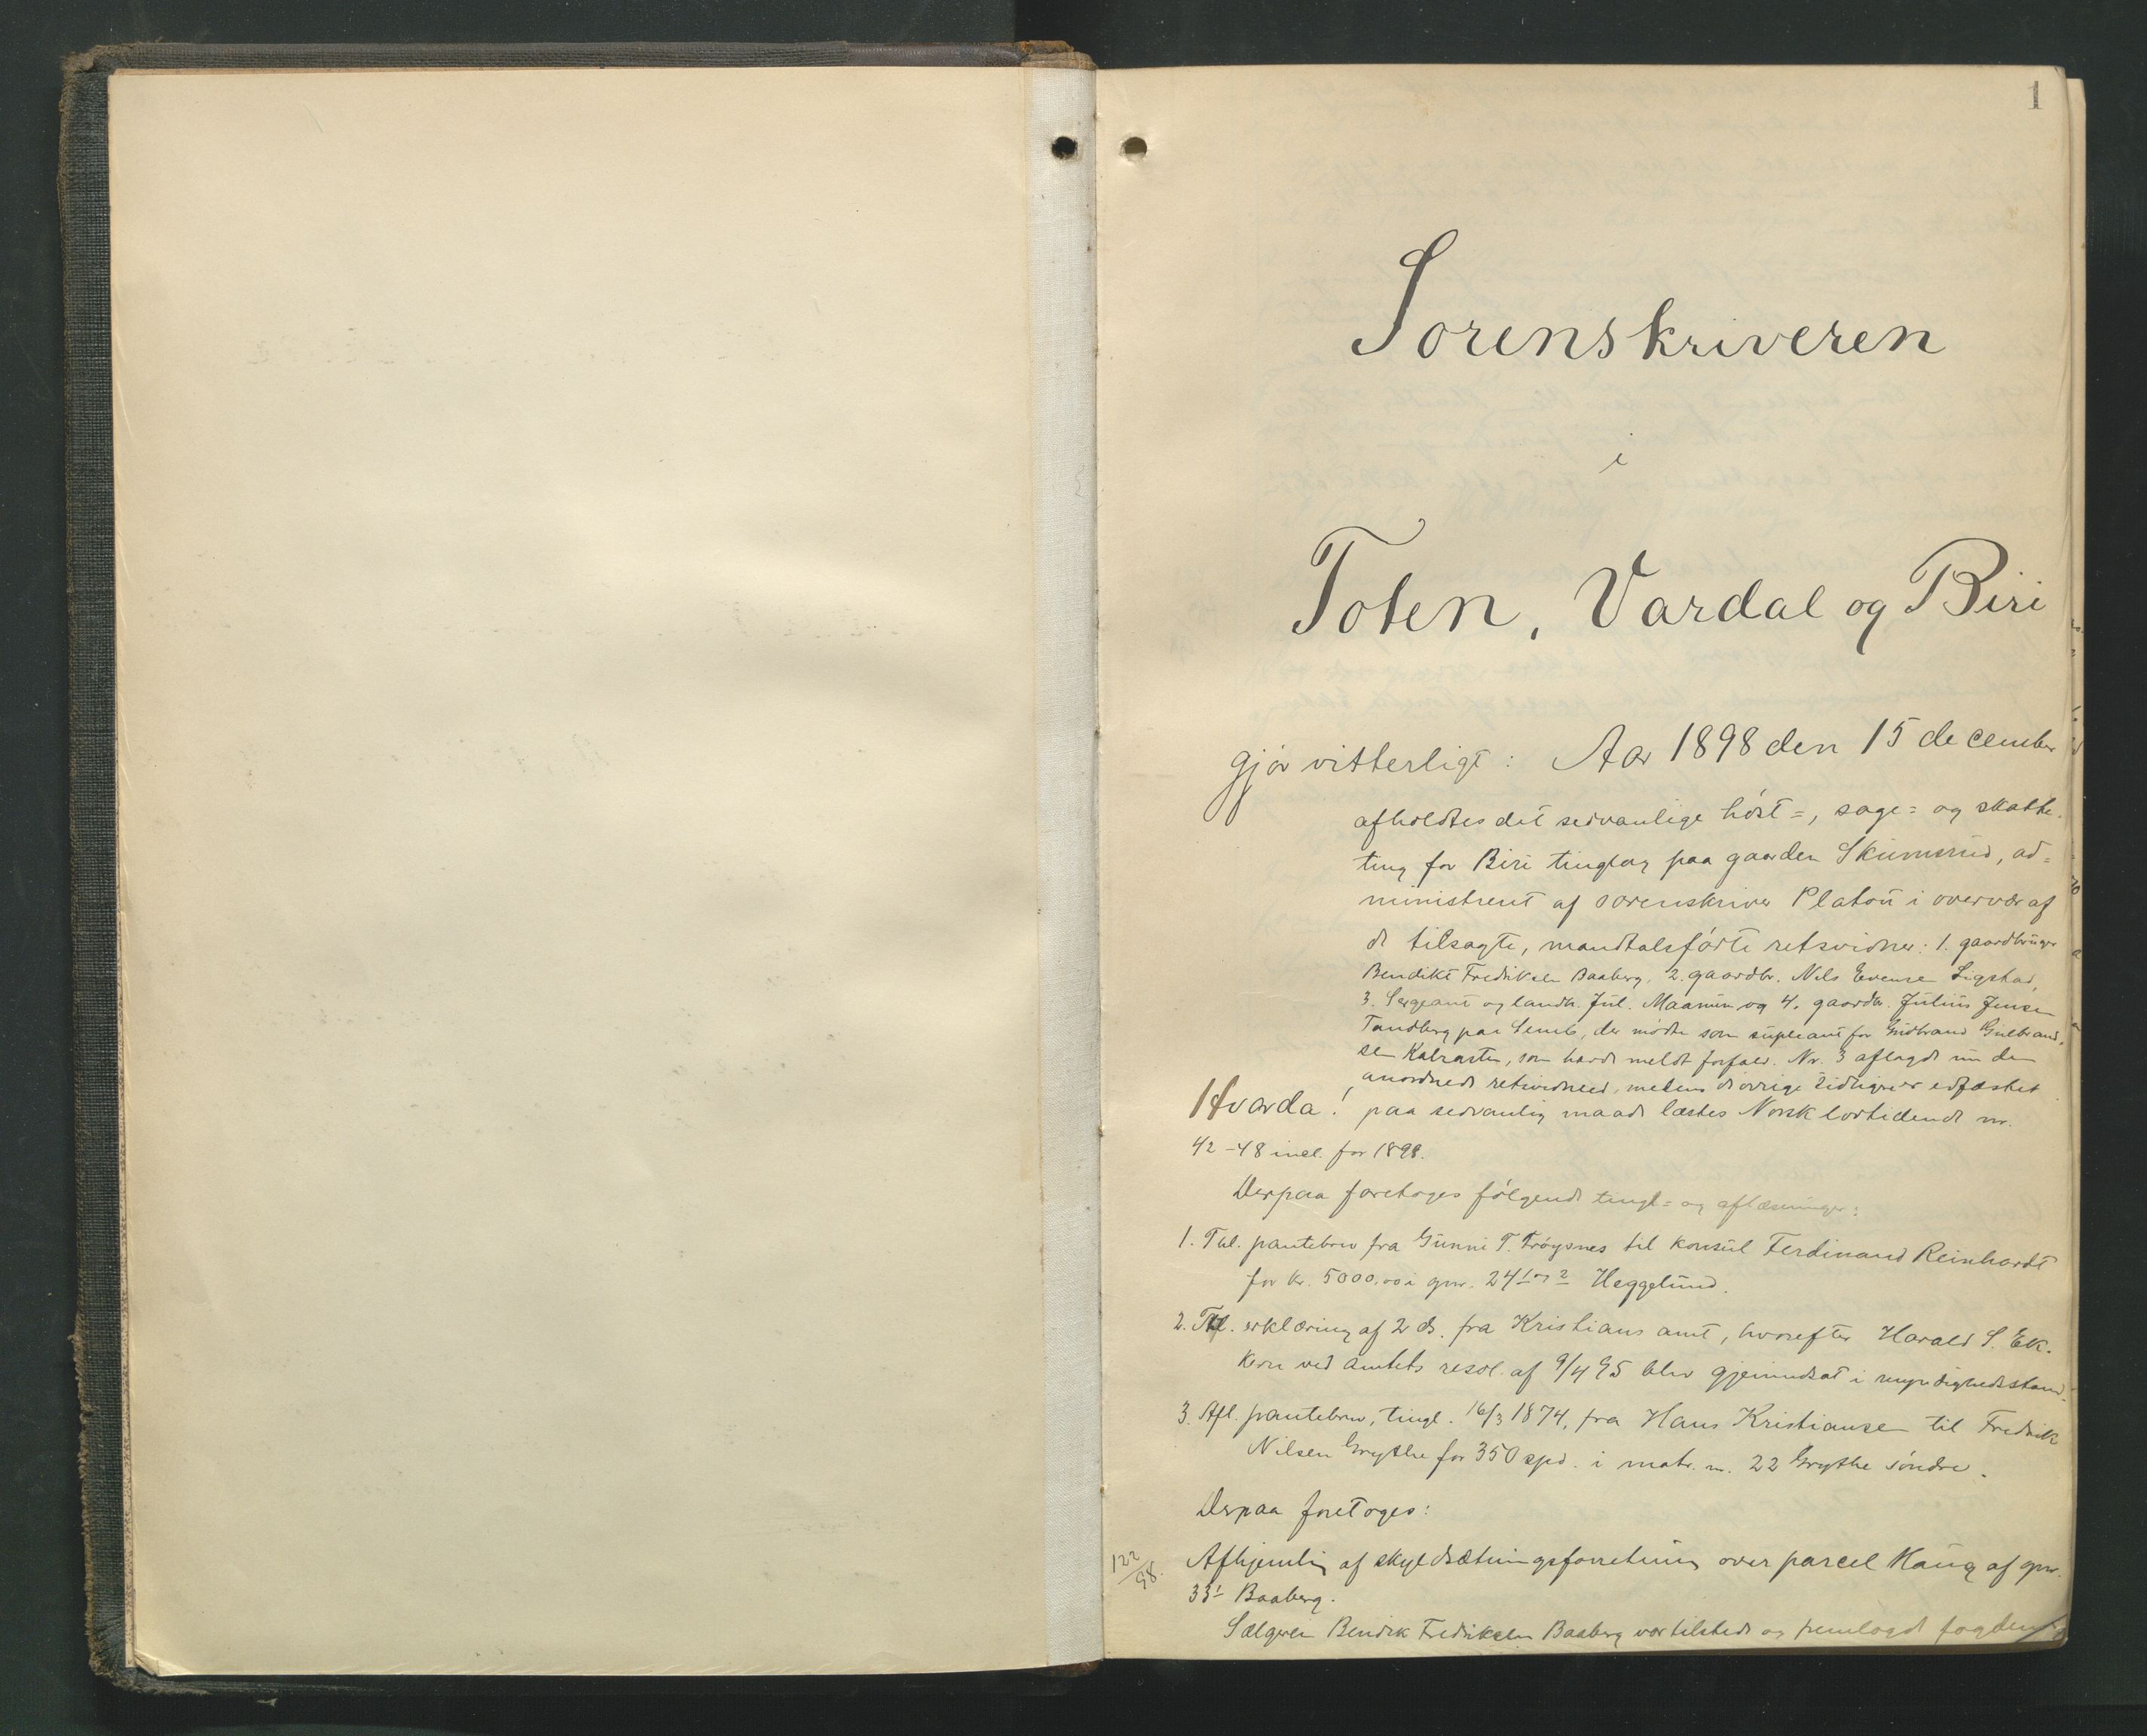 1
Sorenskriveren
i
Toten, Vardal og Biri
gjør vitterligt: Aar 1898 den 15 december
afholdtes det sedvanlige høst=, sage= og skatte-
ting for Biri tinglag paa gaarden Skumsrud, ad=
ministreret af sorenskriver Platou i overvær af
de tilsagte, mandtalsførte retsvidner: 1. gaardbruger
Bendikt Fredriksen Baaberg. 2. gaardbr. Nils Evensen Sigstad,
3. Sergeant og landh. Jul. Maanum og 4. gaardbr. Julius Jensen
Tandberg paa Semb, der mødte som supleant for Gudbrand Gulbrand-
sen, som havde meldt forfald. Nr. 3 aflagde nu den
anordnede retsvidneed, medens de øvrige tidligere er edfæstet.
Hvorda! paa sedvanlig maade læstes Norsk lovtidende nr.
42-48 incl. for 1898.
Derpaa foretoges følgende tingl= og aflæsninger:
1. Thl. pantebrev fra Gunni T. Frøysnes til konsul Ferdinand Reinhardt
for kr. 5000.00 i gnr. 24 1 og 2 Heggelund.
2. Thl. erklæring af 2 ds. fra Kristians amt, hvorefter Harald S. Ek-
kern ved amtets resol. af 9/4 95 blev gjenindsat i myndighedsstand.
3. Afl. pantebrev, tingl. 16/3 1874, fra Hans Kristiansen til Fredrik
Nilsen Grythe for 350 spd. i matr. nr. 22 Grythe søndre.
Derpaa foretoges:
122/98. Afhjemling af skyldsætningsforretning over parcel Haug af gnr.
33 1 Baaberg.
Sælgeren Bendik Fredriksen Baaberg var tilstede og fremlagde fogdens